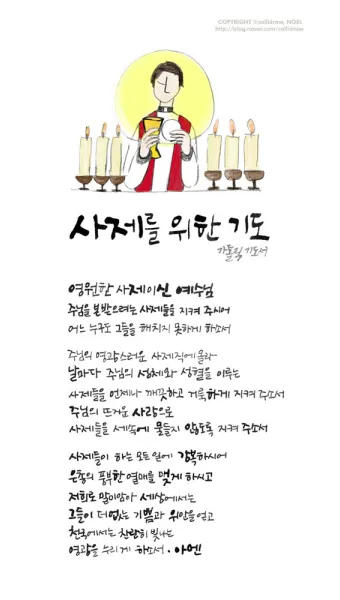 COPYRIGHT ©callidrow, NOEL
http://blog.naver.com/callidrow
사제를 위한 기도
가톨릭 기도서
영원한 사제이신 예수님
주님을 본받으려는 사제들을 지켜 주시어
어느 누구도 그들을 해치지 못하게 하소서
주님의 영광스러운 사제직에 올라
날마다 주님의 성체와 성혈을 이루는
사제들을 언제나 깨끗하고 거룩하게 지켜 주소서
주님의 뜨거운 사랑으로
사제들을 세속에 물들지 않도록 지켜 주소서
사제들이 하는 모든 일에 강복하시어
은총의 풍부한 열매를 맺게 하시고
저희로 말미암아 세상에서는
그들이 더없는 기쁨과 위안을 얻고
천국에서는 찬란히 빛나는
영광을 누리게 하소서 · 아멘